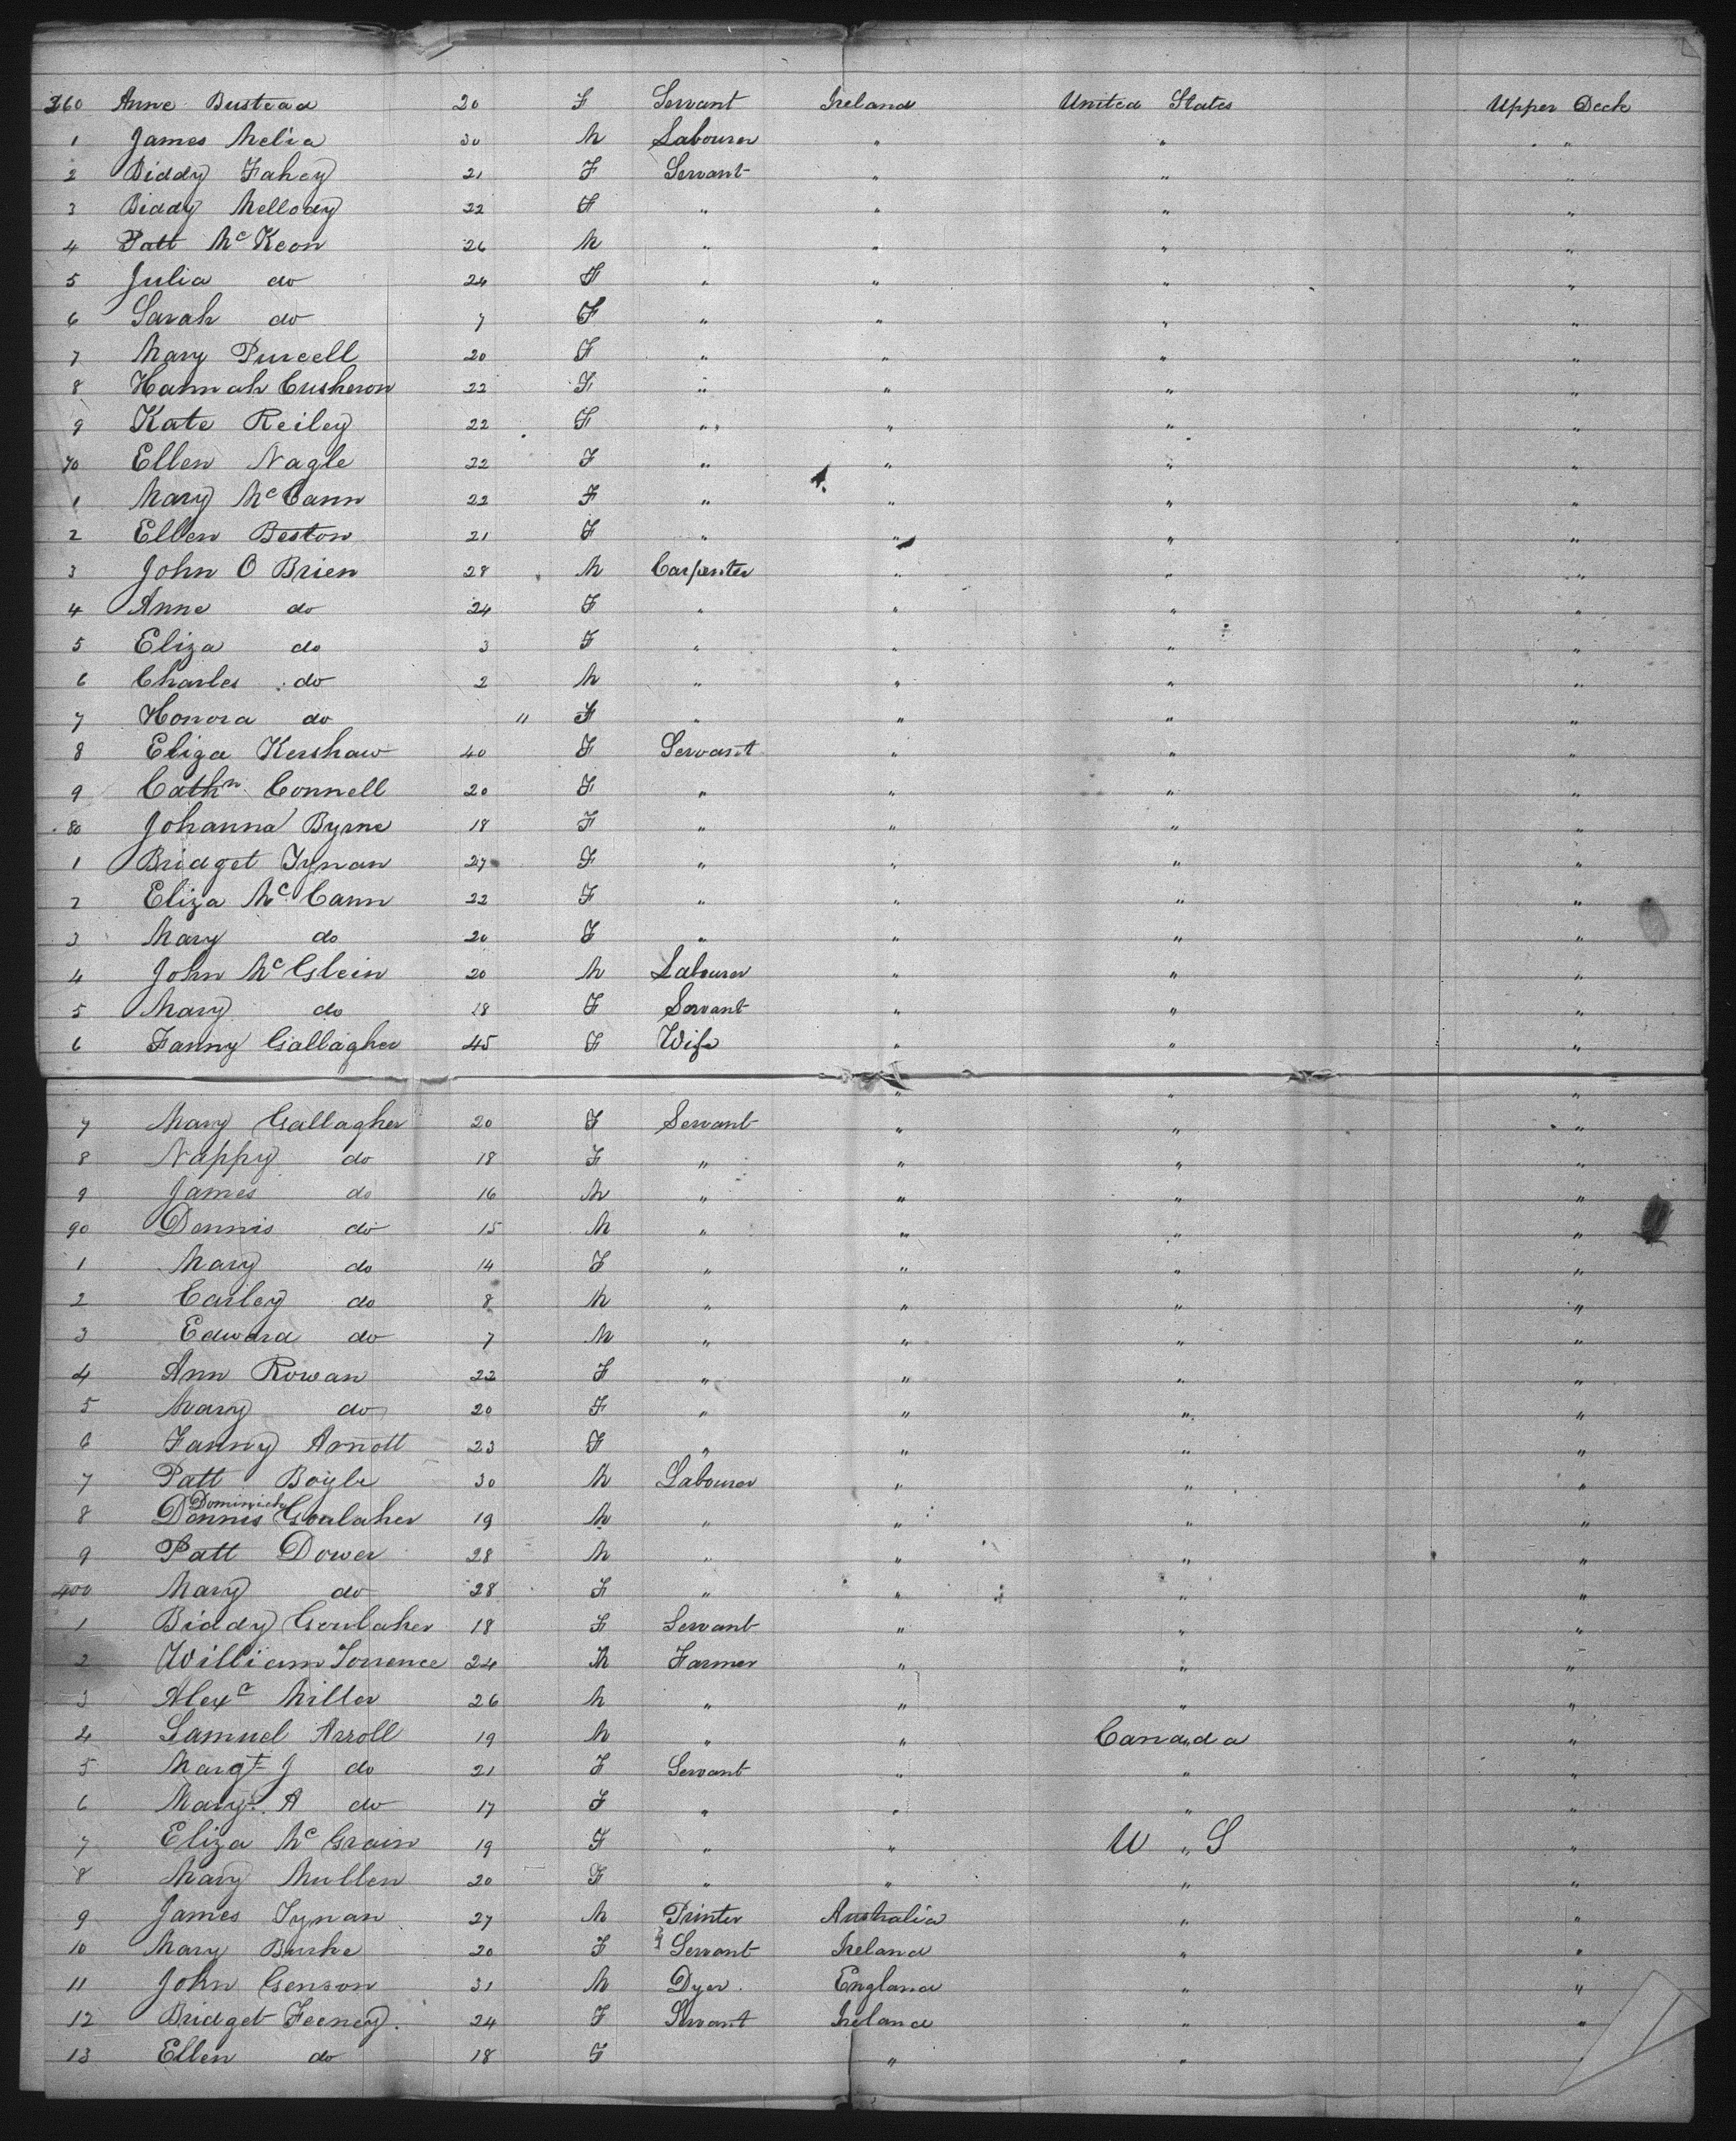 360 Anne Bustead 20 F Servant Ireland United States Upper Deck
1 James Melia 30 M Labourer " " "
2 Biddy Fahey 21 F Servant " " "
3 Biddy Mellody 22 F " " " "
4 Patt McKeon 26 M " " " "
5 Julia do 24 F " " " "
6 Sarah do 7 F " " " "
7 Mary Purcell 20 F " " " "
8 Hannah Cusheron 22 F " " " "
9 Kate Reiley 22 F " " " "
70 Ellen Nagle 22 F " " " "
1 Mary McCann 22 F " " " "
2 Ellen Beston 21 F " " " "
3 John O Brien 28 M Carpenter " " "
4 Anne do 24 F " " " "
5 Eliza do 3 F " " " "
6 Charles do 2 M " " " "
7 Honora do " F " " " "
8 Eliza Kershaw 40 F Servant " " "
9 Cathn Connell 20 F " " " "
80 Johanna Byrne 18 F " " " "
1 Bridget Tynan 27 F " " " "
2 Eliza McCann 22 F " " " "
3 Mary do 20 F " " " "
4 John McGlein 20 M Labourer " " "
5 Mary do 18 F Servant " " "
6 Fanny Gallagher 45 F Wife " " "
" " "
7 Mary Gallagher 20 F Servant " " "
8 Nappy do 18 F " " " "
9 James do 16 M " " " "
90 Dennis do 15 M " " " "
1 Mary do 14 F " " " "
2 Carley do 8 M " " " "
3 Edward do 7 M " " " "
4 Ann Rowan 22 F " " " "
5 Mary do 20 F " " " "
6 Fanny Arnott 23 F " " " "
7 Patt Boyle 30 M Labourer " " "
Dominick
8 Dennis Goulaher 19 M " " " "
9 Patt Dower 28 M " " " "
400 Mary do 28 F " " " "
1 Biddy Goulaher 18 F Servant " " "
2 William Torrence 24 M Farmer " " "
3 Alexr Miller 26 M " " " "
4 Samuel Arroll 19 M " " Canada "
5 Margt J do 21 F Servant " " "
6 Mary A do 17 F " " " "
7 Eliza McGrain 19 F " " U " S "
8 Mary Mullen 20 F " " " "
9 James Tynan 27 M Printer Australia " "
10 Mary Burke 20 F Servant Ireland " "
11 John Genson 31 M Dyer. England " "
12 Bridget Feeney. 24 F Servant Ireland " "
13 Ellen do 18 F " " "